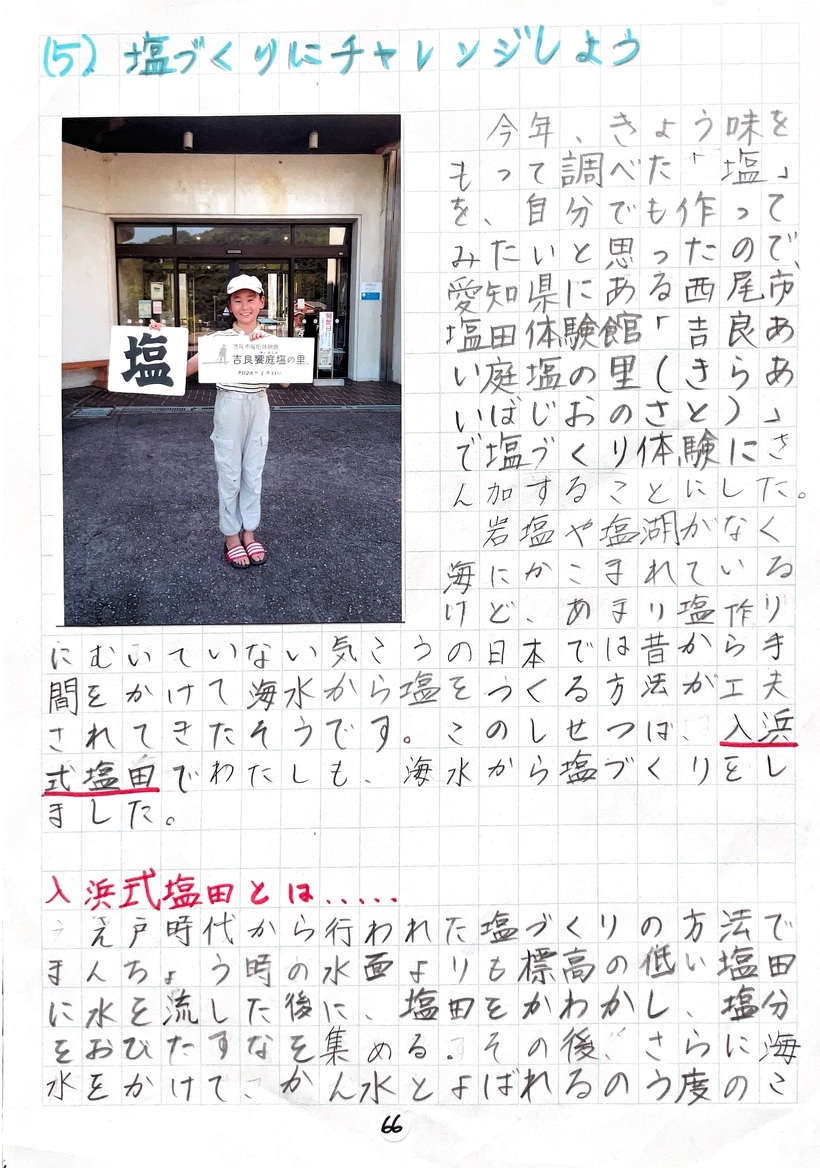 (5) 塩づくりにチャレンジしよう
今年、きょう味を
もって調べた「塩」
を、自分でも作って
みたいと思ったので、
愛知県にある西尾市
塩田体験館「吉良あ
い庭塩の里(きらあ
いばじおのさと)」
で塩づくり体験にさ
ん加することにした。
岩塩や塩湖がなく
海にかこまれている
けど、あまり塩作り
にむいていない気こうの日本では昔から手
間をかけて海水から塩をつくる方法が工夫
されてきたそうです。このしせつは、入浜
式塩田でわたしも、海水から塩づくりをし
ました。
塩
西尾市塩田体験館
吉良饗庭塩の里
入浜式塩田とは.....
え戸時代から行われた塩づくりの方法で
まんちょう時の水面よりも標高の低い塩田
に水を流した後に、塩田をかわかし、塩分
をおびたすなを集める。その後、さらに海
水をかけて、かん水とよばれるのう度のこ
66